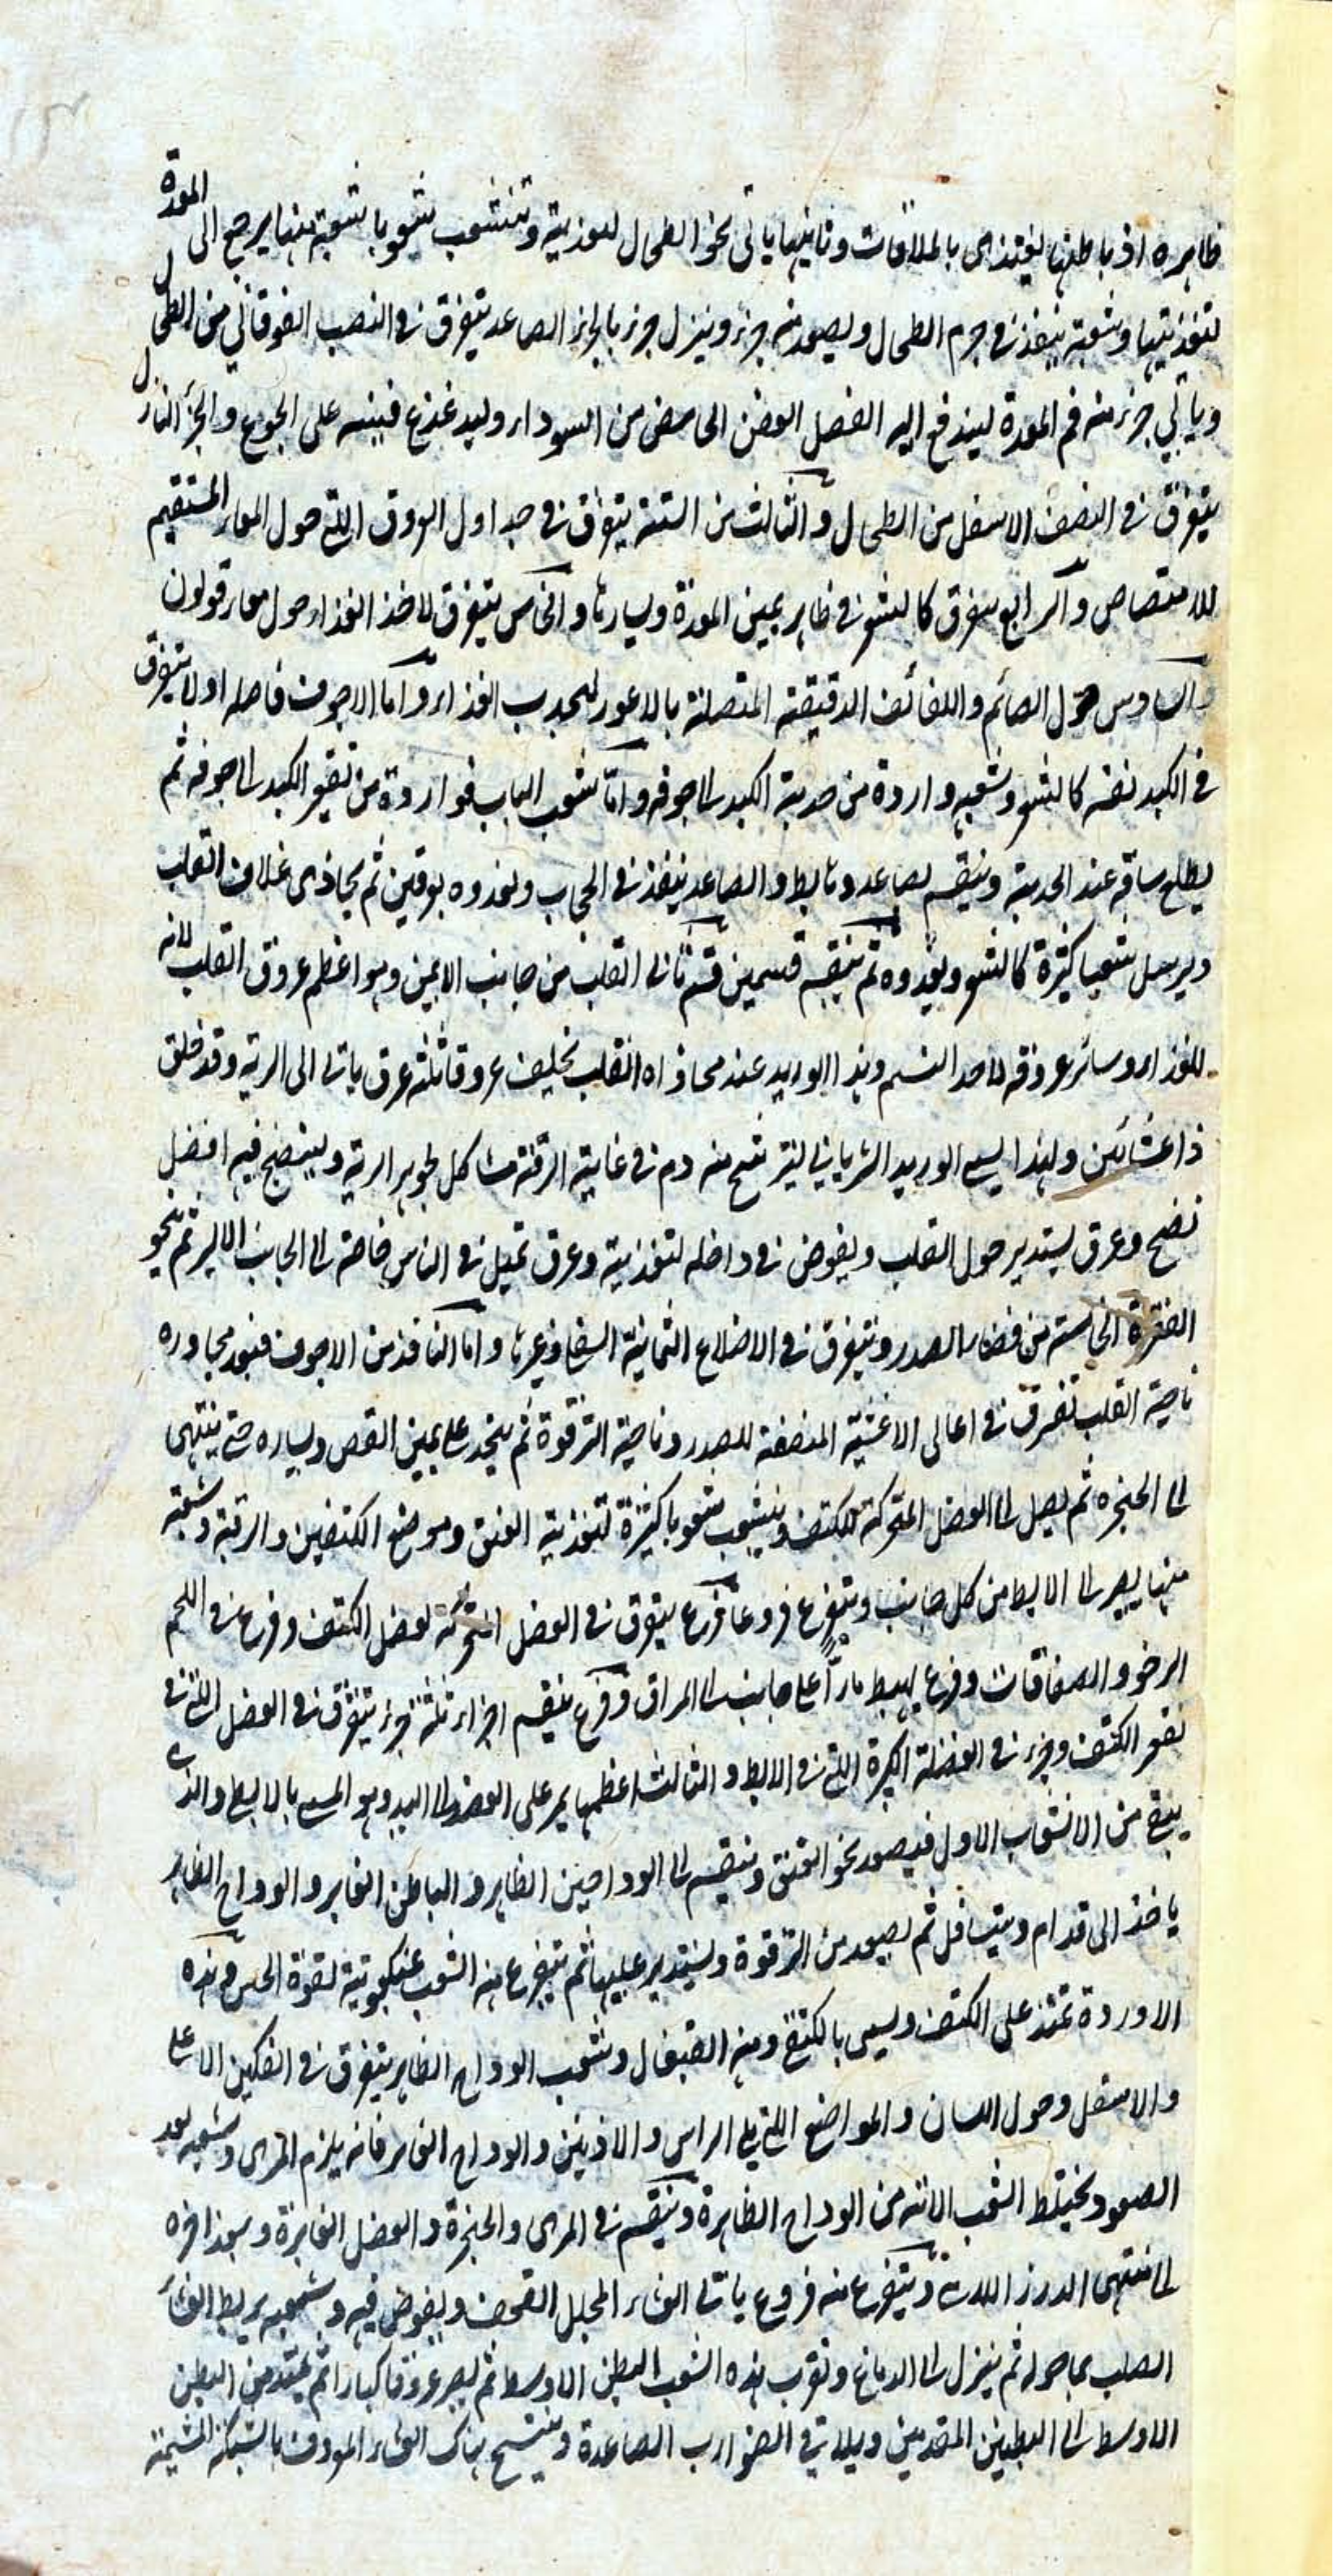 ظاهره او باطنها ليغتذى بالملاقات وثانيها ياتى نحو الطحال لتغذيته وتتشعب شعوبا شعبة منها يرجع الى المعدة
لتغذيتها وشعبة ينفذ فى جرم الطحال ويصعد منه جزء وينزل جزء بالجزء الصاعد يتفرق فى النصف الفوقاني من الطحال
وياتي جزء منه فم المعدة ليندفع اليه الفضل العفص الحامض من السوداء وليدغدغ فينبه على الجوع والجزء النازل
يتفرق فى النصف الاسفل من الطحال والثالث من الستة يتفرق فى جداول العروق اللتى حول المعاء المستقيم
للامتصاص والرابع يتفرق كالشعر فى ظاهر يمين المعدة ويسارها والخامس يتفرق لاخذ الغذاء حول معاء قولون
والسادس حول الصائم واللفائف الدقيقة المتصلة بالاعور ليجذب الغذاء واما الاجوف فاصله اولا يتفرق
فى الكبد نفسه كالشعر وشعبه واردة من حدبة الكبد الى جوفه واما شعب الباب فواردة من تقعير الكبد الى جوفه ثم
يطلع ساقه عند الحدبة وينقسم لصاعد وهابط والصاعد ينفذ فى الحجاب ويغذوه بعرقين ثم يحاذى غلاف القلب
ويرسل شعبا كثيرة كالشعر ويغذوه ثم ينقسم قسمين قسم ياتى القلب من جانب الايمن وهو اعظم عروق القلب لانه
للغذاء وسائر عروقه لاخذ النسيم وهذا الوريد عند محاذاه القلب يخلف عروقا ثلثة عرق ياتى الى الرية وقد خلق
ذا غشائين ولهذا يسمى الوريد الشريانى ليترشح منه دم فى غاية الرقة مشاكل لجوهر الرية ولينضج فيه افضل
نضج وعرق يستدير حول القلب ويغوص فى داخله لتغذيته وعرق تميل فى الناس خاصة الى الجانب الايسر ثم ينحو
الفقرة الخامسة من فقار الصدر ويتفرق فى الاضلاع الثمانية السفلى وغيرها واما النافذ من الاجوف فبعد مجاوزه
ناحية القلب تفرق فى اعالى الاغشية المنصفة للصدر وناحية الترقوة ثم ينحدر على يمين القص ويساره حتى ينتهى
الى الحنجره ثم يصل الى العضل المتحركة للكتف وينشعب شعوبا كثيرة لتغذية العنق وموضع الكتفين والرقبة وشعبة
منها يصير الى الابط من كل جانب ويتفرع فروعا فرع يتفرق فى العضل المتحركه لعضل الكتف وفرع فى اللحم
الرخو والصفاقات وفرع يهبط مارّا على جانب الى المراق وفرع ينقسم اجزاء ثلثة جزء يتفرق فى العضل اللتى فى
تقعر الكتف وجزء فى العضلة الكبيرة اللتى فى الابط والثالث اعظمها يمر على العضد الى اليد وهو المسمى بالابطى والذى
يبقى من الانشعاب الاول فيصعد نحو العنق وينقسم الى الوداجين الظاهر والباطن الغاير والوداج الظاهر
ياخذ الى قدام ويتسافل ثم يصعد من الترقوة ويستدير عليها ثم يتفرع منه الشعب عنكبوتية لقوة الحس وهذه
الاوردة تمتد على الكتف ويسمى بالكتفى ومنه القيفال وشعب الوداج الظاهر يتفرق فى الفكين الاعلى
والاسفل وحول اللسان والمواضع اللتى يلى الراس والاذنين والوداج الغاير فانه يلزم المرى وشعبه بعد
الصعود يختلط الشعب الاتيه من الوداج الظاهرة وينقسم فى المرى والحنجرة والعضل الغايرة وينفذ اخره
الى منتهى الدرز اللامى ويتفرع منه فروع ياتى الغشاء المجلل القحف ويغوص فيه وشعبه يربط الغشاء
الصلب بما حوله ثم ينزل الى الدماغ وتقرب هذه الشعب البطن الاوسط ثم يصير عروقا كبارا ثم يمتد من البطن
الاوسط الى البطنين المقدمين ويلاقي الضوارب الصاعدة وينتسج هناك الغشاء المعروف بالشبكة المشيمة